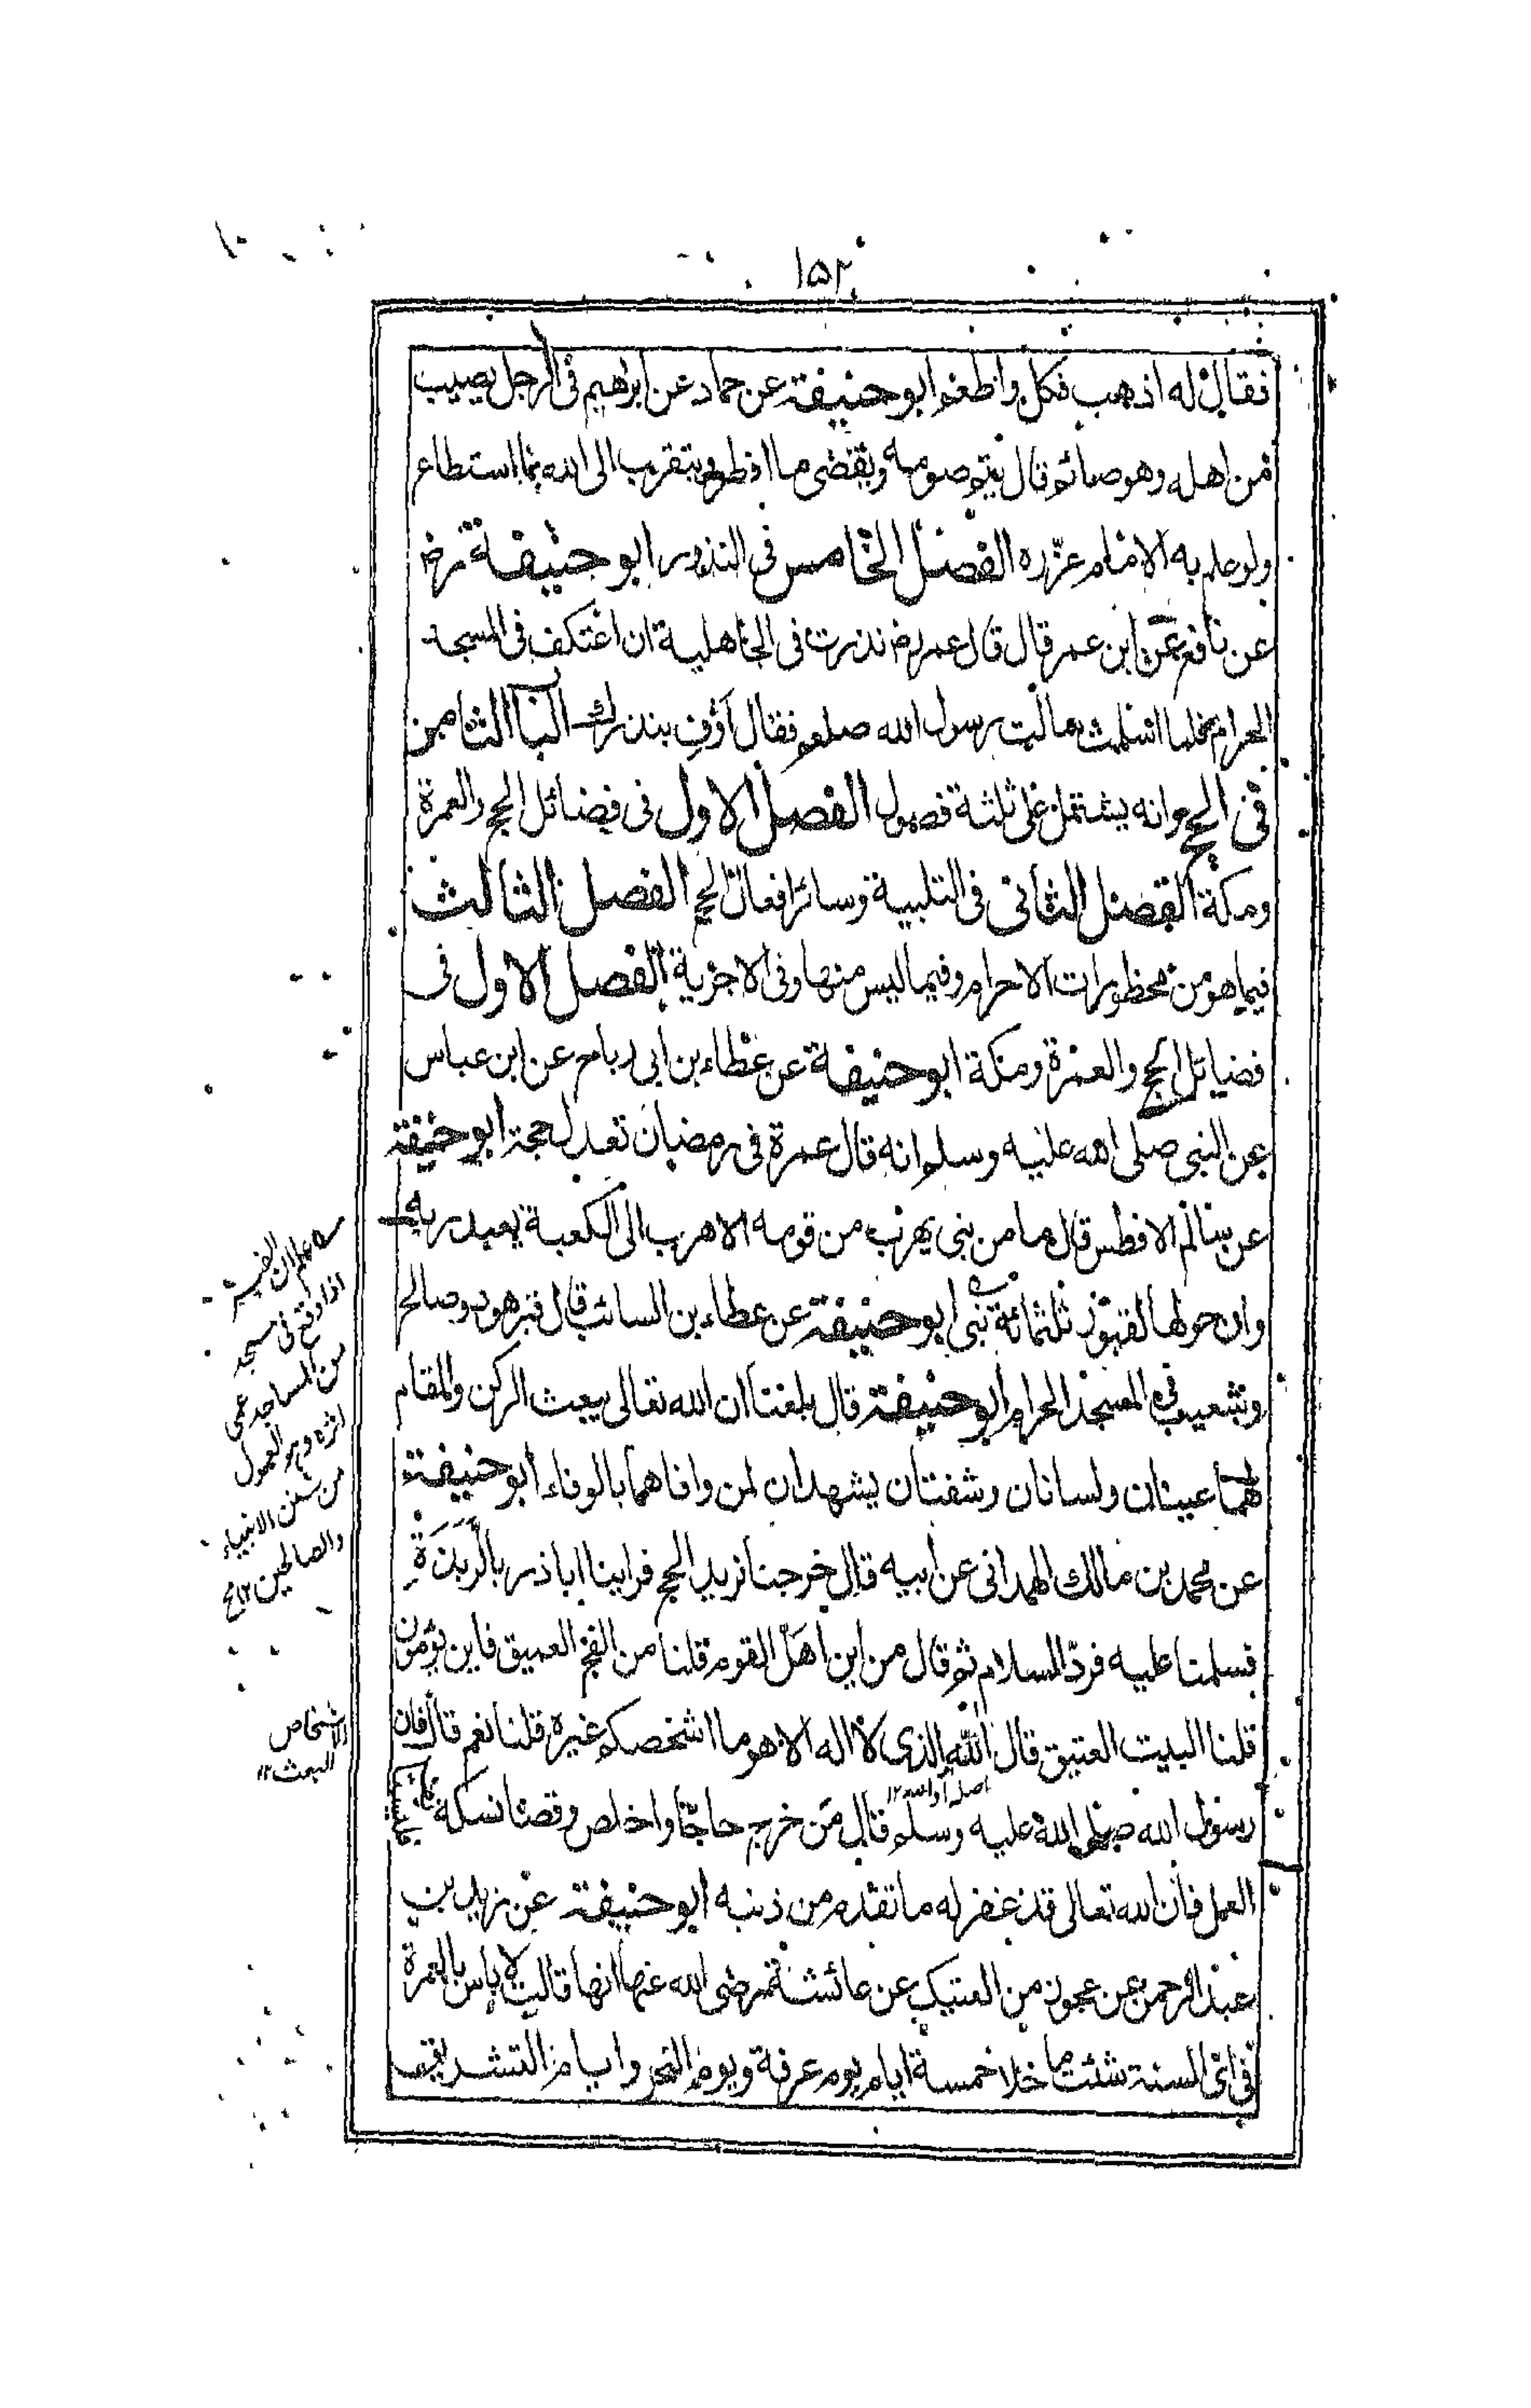 ١٥٢
فقال له اذهب فكل واطعم ابو حنيفة عن حماد عن ابرهيم فى الرجل يصيب
من اهله وهو صائم قال يتم صومه ويقضى ما افطر ويتقرب الى الله بما استطاع
ولو علم به الامام عزّره الفصل الخامس فى النذور ابو حنيفة رض
عن نافع عن ابن عمر قال قال عمر رض نذرت فى الجاهلية ان اعتكف فى المسجد
الحرام فلما اسلمت سالت رسول الله صلعم فقال اَوْفِ بنذرك الباب الثامن
فى الحج وانه يشتمل على ثلثة فصول الفصل الاول فى فضائل الحج والعمرة
ومكة الفصل الثانى فى التلبية وسائر افعال الحج الفصل الثالث
فيما هو من محظورات الاحرام وفيما ليس منها وفى الاجزية الفصل الاول فى
فضائل الحج والعمرة ومكة ابو حنيفة عن عطاء بن ابى رباح عن ابن عباس
عن النبى صلى الله عليه وسلم انه قال عمرة فى رمضان تعدل حجة ابو حنيفة
عن سالم الافطس قال ما من نبى يهرب من قومه الا هرب الى الكعبة يعبد ربه
وان حولها لقبور ثلثمائة نبى ابو حنيفة عن عطاء بن السائب قال قبر هود وصالح
وشعيب فى المسجد الحرام ابو حنيفة قال بلغنا ان الله تعالى يبعث الركن والمقام
لهما عينان ولسانان وشفتان يشهدان لمن وافاهما بالوفاء ابو حنيفة
عن محمد بن مالك الهمدانى عن ابيه قال خرجنا نريد الحج فراينا ابا ذر بالرَّبَذَةِ
فسلمنا عليه فردّ السلام ثم قال من اين اهَلّ القوم قلنا من الفج العميق فاين يؤمون
قلنا البيت العتيق قال اللّٰه الذى لا اله الا هو ما اشخصكم غيره قلنا نعم قال فان
اصله اوالله ١٢
رسول الله صلى الله عليه وسلم قال مَن خرج حاجّا واخلص وقضا نسكه
العمل فان الله تعالى قد غفر له ما تقدم من ذنبه ابو حنيفة عن يزيد بن
عبد الرحمن عن عجوز من العتيك عن عائشة رضى الله عنها انها قالت لا باس بالعمرة
فى اى السنة شئت ما خلا خمسة ايام يوم عرفة ويوم النحر وايام التشريق
اعلم ان القبر
اذا وقع فى مسجد
من المساجد عمى
اثره وهو المعمول
من سنن الانبياء
والصالحين ١٢
الاشخاص
البعث ١٢